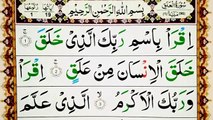 بِسْمِ اللّٰهِ الرَّحْمٰنِ الرَّحِيْمِ
اِقْرَاْ بِاسْمِ رَبِّكَ الَّذِىْ خَلَقَ ۚ ۱
خَلَقَ الْاِنْسَانَ مِنْ عَلَقٍ ۚ ۲ اِقْرَاْ
وَرَبُّكَ الْاَكْرَمُ ۙ ۳ الَّذِىْ عَلَّمَ